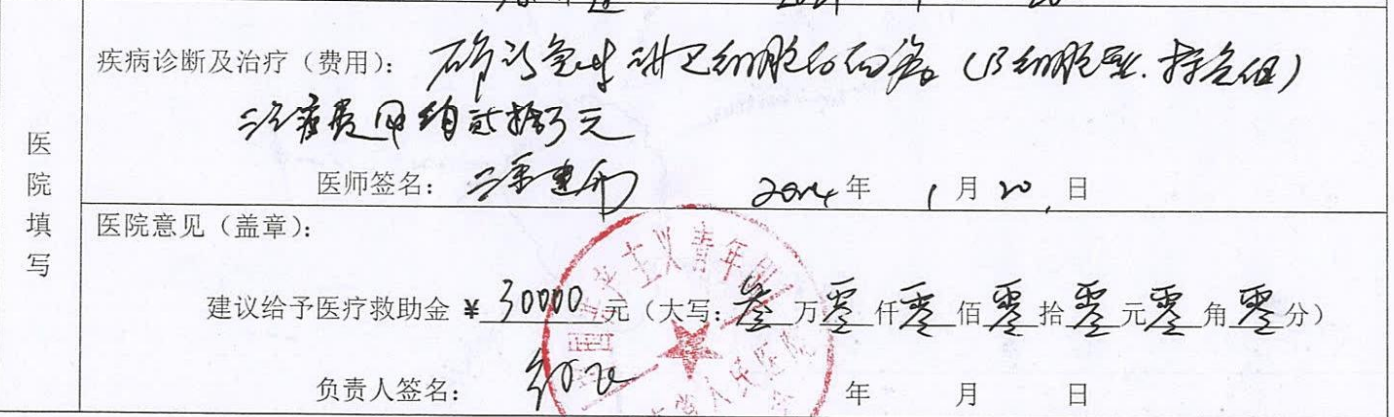 疾病诊断及治疗（费用）： 确诊急性淋巴细胞白血病（B细胞型.标危组）
治疗费用约贰拾万元
医师签名： 2014年 1月20日
医院填写
医院意见（盖章）：
建议给予医疗救助金 ¥30000元（大写：叁万零仟零佰零拾零元零角零分）
负责人签名： 年 月 日
产主义青年团
人民医院